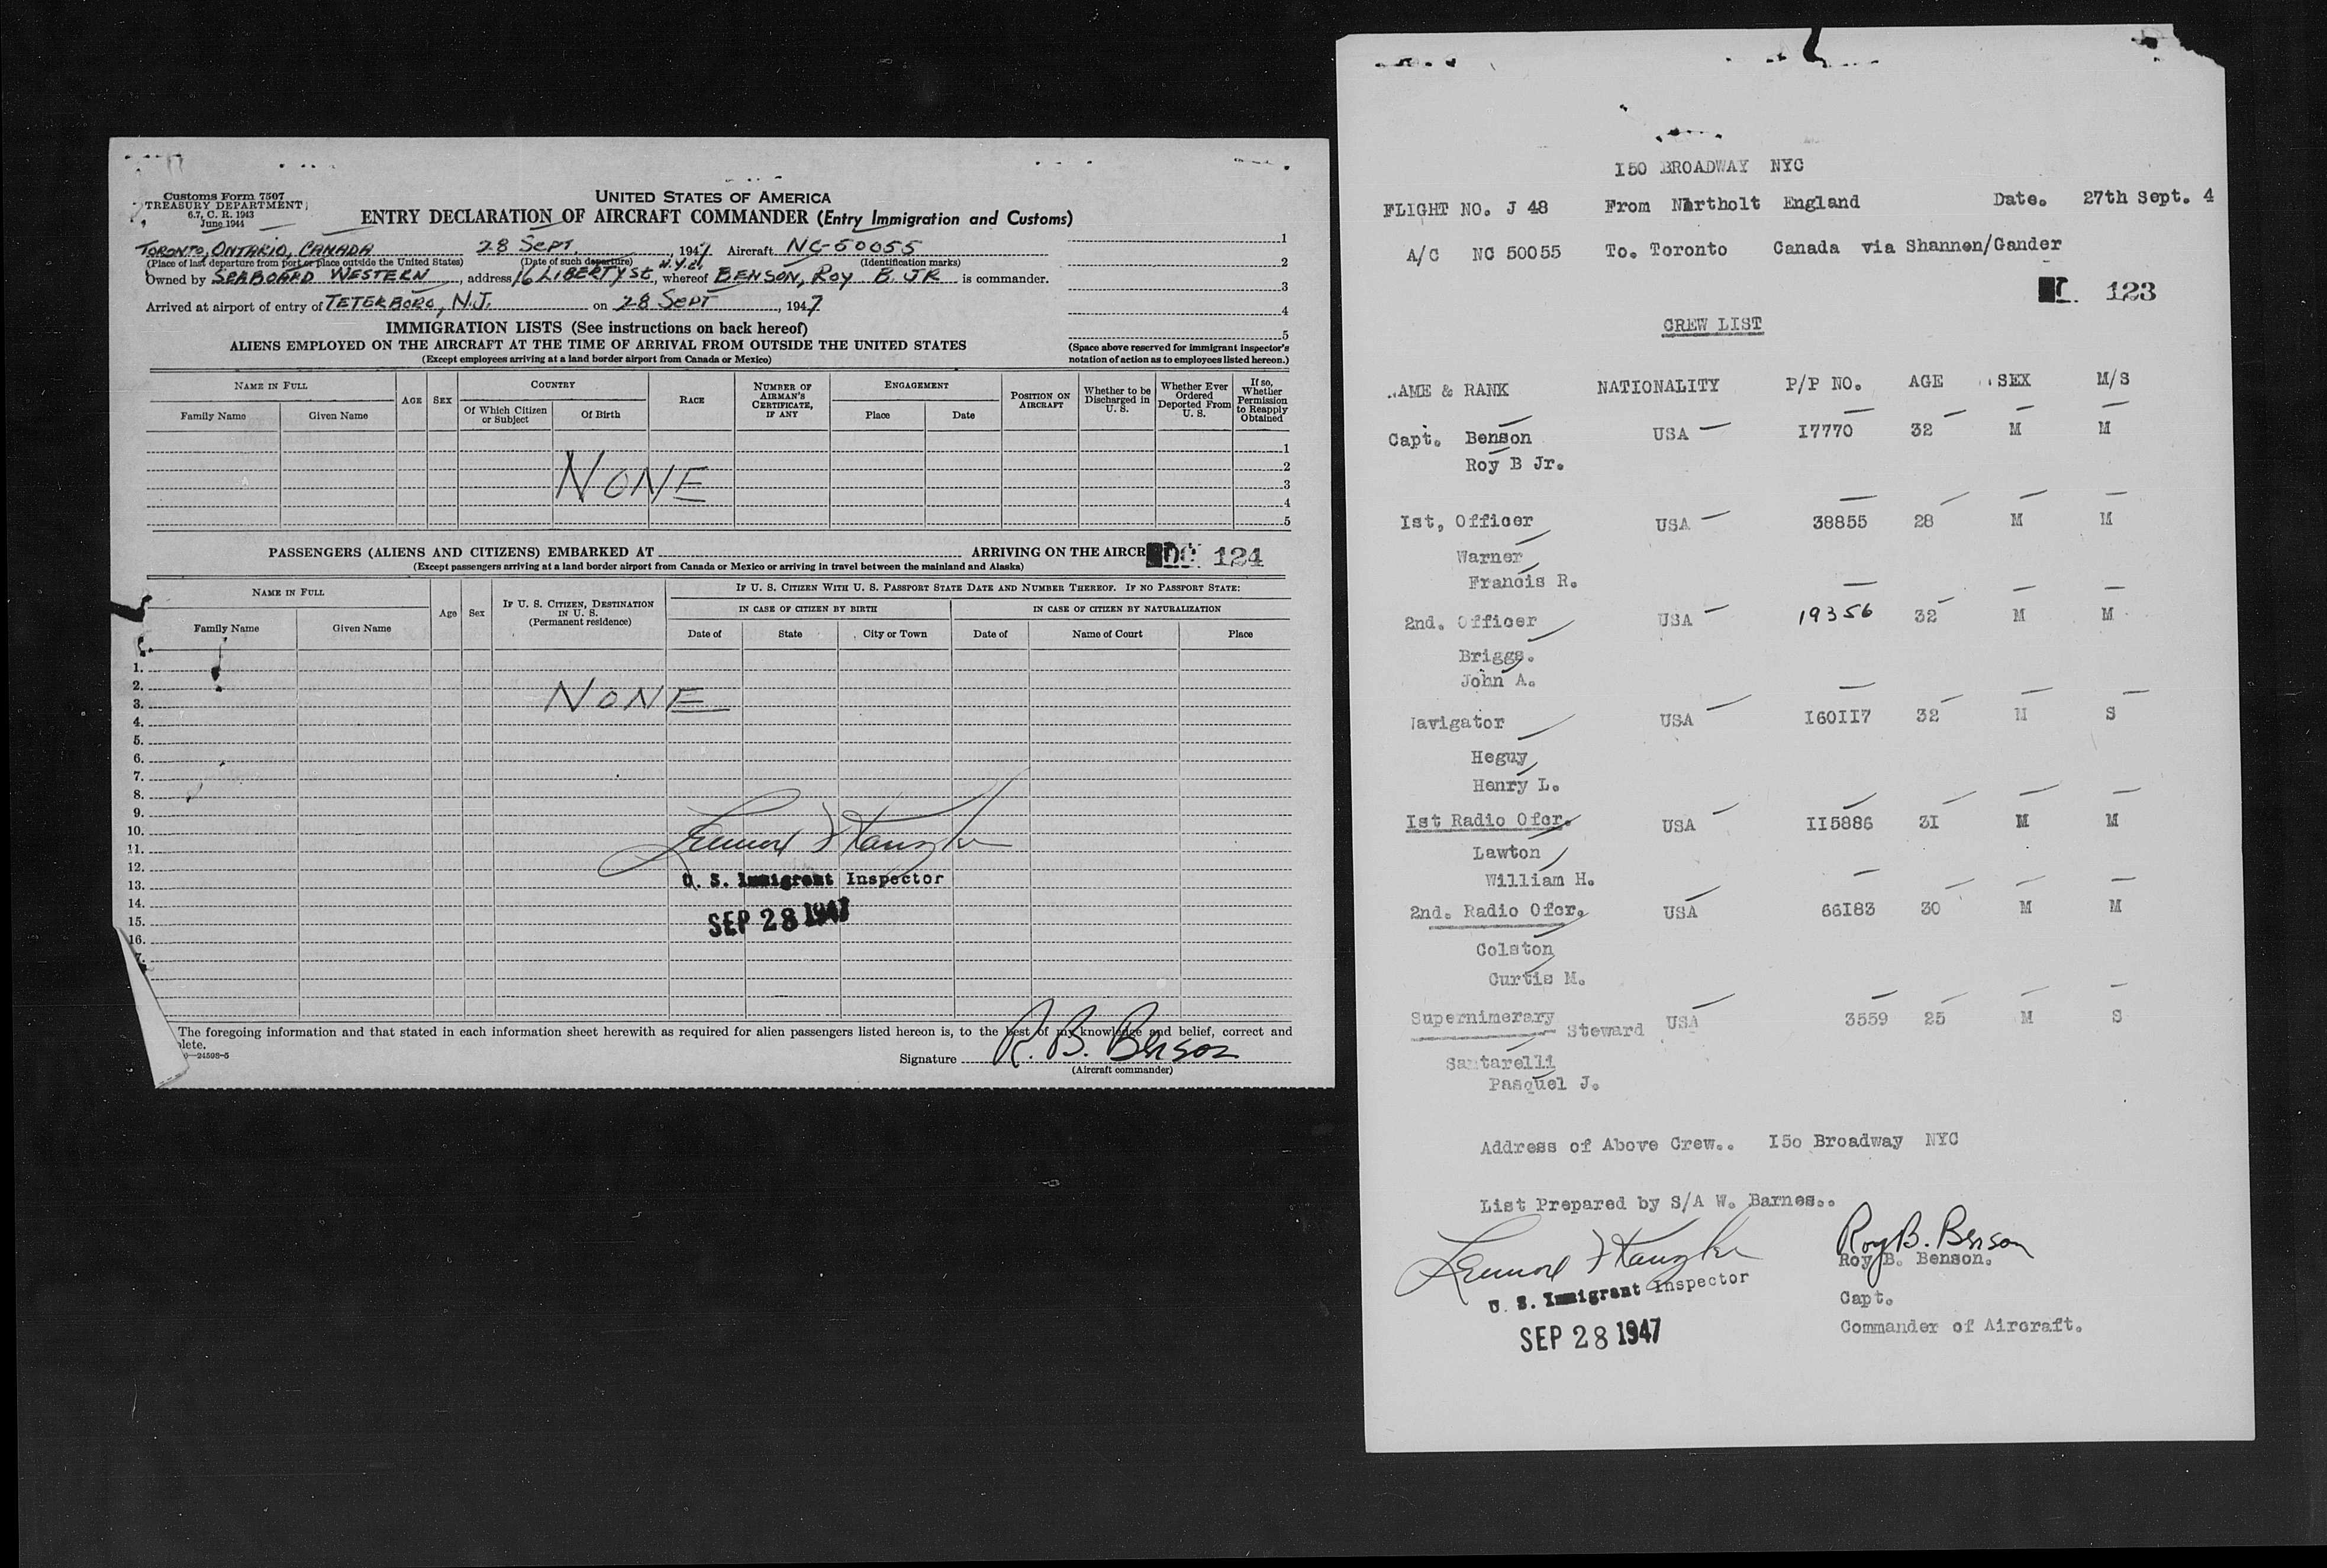 Customs Form 7507
TREASURY DEPARTMENT
6.7, C. R. 1943
June 1944
UNITED STATES OF AMERICA
ENTRY DECLARATION OF AIRCRAFT COMMANDER (Entry Immigration and Customs)
TORONTO, ONTARIO, CANADA 28 SEPT, 1947 Aircraft NC-50055
(Place of last departure from port or place outside the United States) (Date of such departure) (Identification marks)
N.Y.C.
Owned by SEABOARD WESTERN, address 16 LIBERTY St, whereof BENSON, ROY B. JR is commander.
Arrived at airport of entry of TETERBORO, N.J. on 28 SEPT, 1947
1
2
3
4
5
(Space above reserved for immigrant inspector's
notation of action as to employees listed hereon.)
IMMIGRATION LISTS (See instructions on back hereof)
ALIENS EMPLOYED ON THE AIRCRAFT AT THE TIME OF ARRIVAL FROM OUTSIDE THE UNITED STATES
(Except employees arriving at a land border airport from Canada or Mexico)
NAME IN FULL
Family Name Given Name
AGE SEX
COUNTRY
Of Which Citizen or Subject Of Birth
RACE
NUMBER OF AIRMAN'S CERTIFICATE, IF ANY
ENGAGEMENT
Place Date
POSITION ON AIRCRAFT
Whether to be Discharged in U. S.
Whether Ever Ordered Deported From U. S.
If so, Whether Permission to Reapply Obtained
1
2
3
4
5
NONE
PASSENGERS (ALIENS AND CITIZENS) EMBARKED AT ARRIVING ON THE AIRCR 124
(Except passengers arriving at a land border airport from Canada or Mexico or arriving in travel between the mainland and Alaska)
NAME IN FULL
Family Name Given Name
Age Sex
IF U. S. CITIZEN, DESTINATION
IN U. S.
(Permanent residence)
IF U. S. CITIZEN WITH U. S. PASSPORT STATE DATE AND NUMBER THEREOF. IF NO PASSPORT STATE:
IN CASE OF CITIZEN BY BIRTH IN CASE OF CITIZEN BY NATURALIZATION
Date of State City or Town Date of Name of Court Place
1.
2.
3.
4.
5.
6.
7.
8.
9.
10.
11.
12.
13.
14.
15.
16.
NONE
U. S. Immigrant Inspector
SEP 28 1947
The foregoing information and that stated in each information sheet herewith as required for alien passengers listed hereon is, to the best of my knowledge and belief, correct and
plete.
—24598-5
Signature R. B. Benson
(Aircraft commander)
I50 BROADWAY NYC
FLIGHT NO. J 48 From Northolt England Date. 27th Sept. 4
A/C NC 50055 To. Toronto Canada via Shannon/Gander
123
CREW LIST
AME & RANK NATIONALITY P/P NO. AGE SEX M/S
Capt. Benson USA I7770 32 M M
Roy B Jr.
Ist, Officer USA 38855 28 M M
Warner
Francis R.
2nd. Officer USA 19356 32 M M
Briggs.
John A.
Navigator USA I60II7 32 M S
Heguy
Henry L.
Ist Radio Ofcr. USA II5886 3I M M
Lawton
William H.
2nd. Radio Ofcr. USA 66I83 30 M M
Colston
Curtis M.
Supernimerary Steward USA 3559 25 M S
Santarelli
Pasquel J.
Address of Above Crew.. I5o Broadway NYC
List Prepared by S/A W. Barnes..
Roy B. Benson
Roy B. Benson.
U. S. Immigrant Inspector
Capt.
SEP 28 1947
Commander of Aircraft.